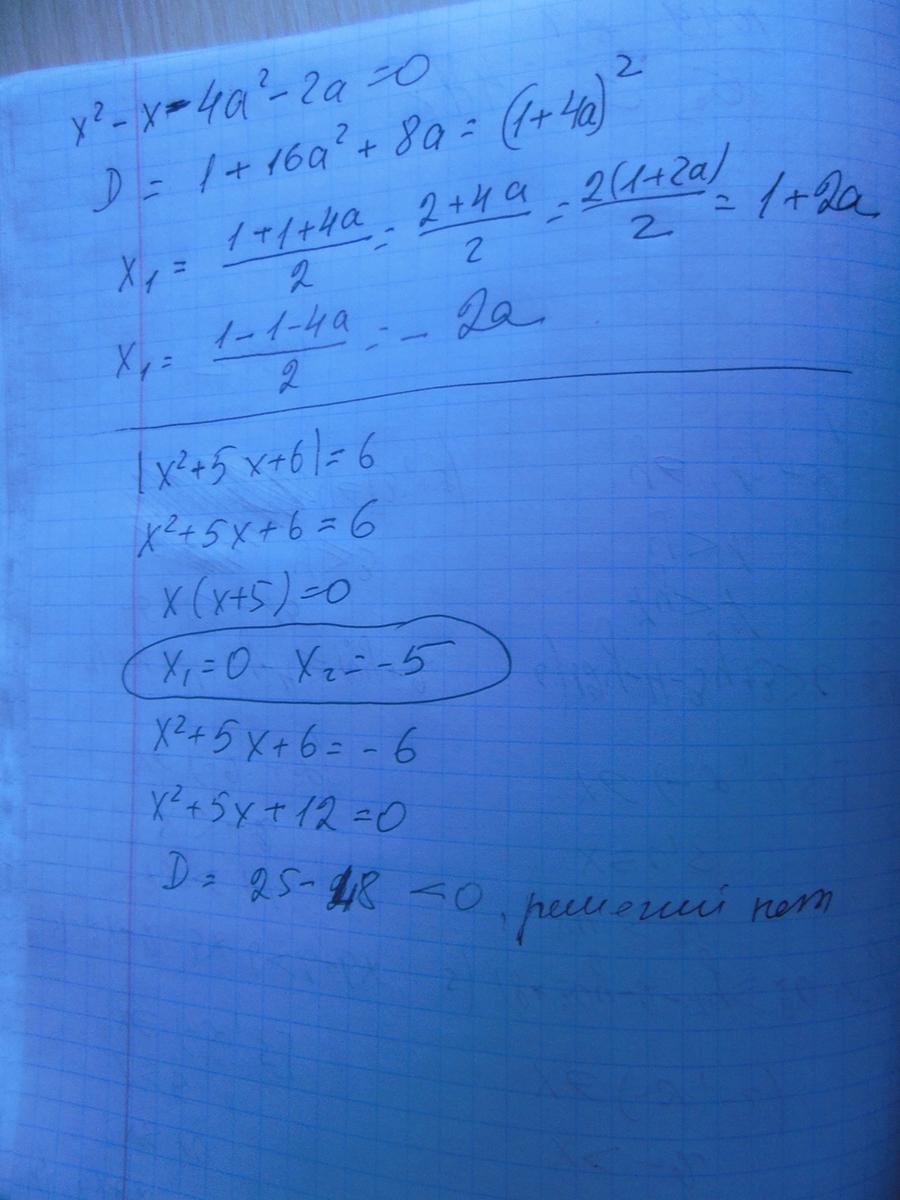 x² - x - 4a² - 2a = 0
D = 1 + 16a² + 8a = (1 + 4a)²
x₁ = (1+1+4a)/2 = (2+4a)/2 = 2(1+2a)/2 = 1 + 2a
x₁ = (1-1-4a)/2 = - 2a
|x² + 5x + 6| = 6
x² + 5x + 6 = 6
x(x+5) = 0
x₁ = 0 x₂ = -5
x² + 5x + 6 = -6
x² + 5x + 12 = 0
D = 25 - 48 < 0, решений нет